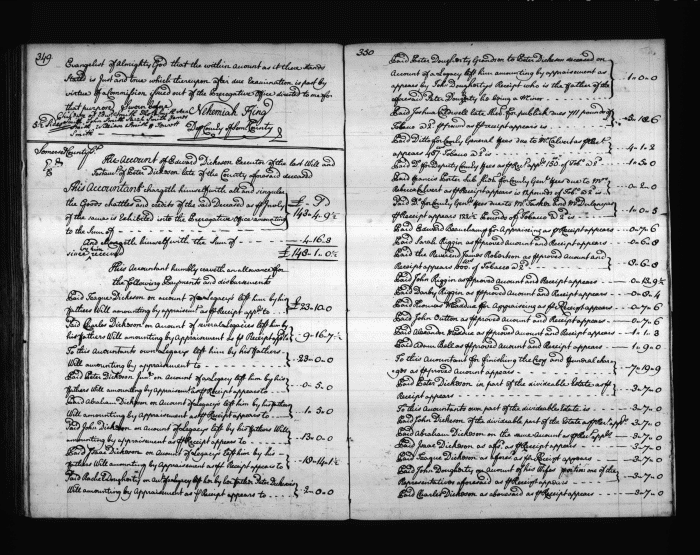 349
Evangelist of Almighty God that the within account as it there stands
Stated is Just and true which thereupon after due Examination is past by
virtue of a Commission issued out of the Prerogative Office directed to me for
that purpose Sworn before
Nehemiah King
Dy County of Som County
Somerset County Sct
The Account of Edward Dickeson Executor of the last Will and
Testam of Peter Dickeson late of the County aforesaid deceased
This Accountant chargeth himself with all and singular
the Goods chattles and credits of the said Deceased as
of the same is Exhibited into the Prerogative Office amounting
to the Sum of 143-4-9½
And chargeth himself with the Sum of 4-16-3
since received £ 148-1-0½
This Accountant humbly craveth an allowance for
the following Payments and disbursments
Paid Teague Dickeson on account of a Legacy left him by his
fathers Will amounting by appraisment as Receipt appr to £23-10-0
Paid Charles Dickeson on Account of several Legacies left him by
his fathers Will amounting by Appraisment as Receipt 9-16-7½
To this Accountants own Legacy left him by his fathers
Will amounting by appraisement to 23-0-0
Paid Peter Dickeson on account of a Legacy left him by his
fathers Will amounting by appraisment as Receipt appears 0-5-0
Paid Abraham Dickeson on Account of Legacys left him by his father
Will amounting by Appraisement as Receipt appears to 1-5-0
Paid John Dickeson on Account of Legacys left by his fathers Will
amounting by appraisement as Receipt appears to 13-0-0
Paid Isaac Dickeson on Account of Legacys left him by his
fathers Will amounting by Appraisement as Receipt appears to 19-14-1½
Paid Rachel Dougherty on Acct of Legacy left her by her father Peter Dickeson
Will amounting by Appraisement as Receipt appears to 2-0-0
350
Paid Peter Dougherty Grandson to Peter Dickeson deceased on
Account of a Legacy left him amounting by appraisement as
appears by John Doughertys Receipt who is the father of the
aforesaid Peter Dougherty he being a Minor 1-0-0
Paid Joshua Cottwell late for publick dues 711 pounds of
Tobacco as proof as receipt appears is 3-18-6
Paid Ditto for County General fees due to Mr Calvert as
appears 467 Tobacco 4-1-2
Paid Do for Deputy County fees as appr 150 of Tob 1-5-0
Paid Francis Porter for County Genl fees due to Mr
Calvert as Receipt appears 12 pounds of Tob 0-2-0
Paid Do for County Genl fees due to Mr and Mr
Receipt appears 122½ pounds of Tobacco 1-0-5
Paid Edward Beauchamp for Appraising as Receipt appears 0-7-6
Paid Sarah Riggin as proved Account and Receipt appears 0-6-8
Paid the Reverend James Robertson as proved Account and
Receipt appears 800 of Tobacco 3-6-8
Paid John Riggin as proved Account and Receipt appears
Paid Darby Riggin as proved Account and Receipt appears 0-8-4
Paid Thomas Maddux for Appraising as Receipt appears 0-7-6
Paid John Outten as proved Account and Receipt appears 0-7-6
Paid Alexander Maddux as proved Account and Receipt appears 1-1-3
Paid Adam Bell as proved Account and Receipt appears 1-9-0
To this Accountant for finishing the Crop and General
as proved Account appears 7-19-9
Paid Peter Dickeson in part of the divideable Estate as
Receipt appears 3-7-0
To this Accountants own part of the divideable Estate is 3-7-0
Paid John Dickeson of the divideable part of the Estate as Rec 3-7-0
Paid Abraham Dickeson on the same Account as Rec 3-7-0
Paid Isaac Dickeson as as Receipt appears 3-7-0
Paid Teague Dickeson as aforesd as Receipt appears 3-7-0
Paid John Dougherty on account of his Wifes portion one of the
Representatives aforesaid as Receipt appears 3-7-0
Paid Charles Dickeson as aforesaid as Receipt appears 3-7-0